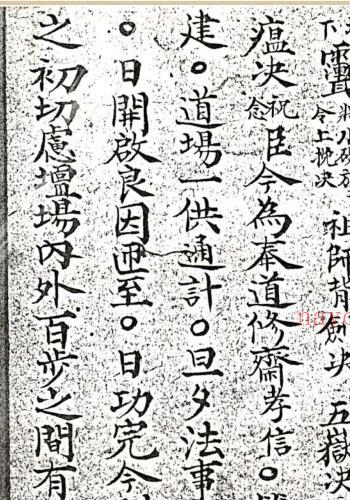 祖師背劍决 五嶽决
瘟决念祝臣今為奉道修齋孝信○
建○道場一供通計○旦夕法事
○日開啟良因迊至○日功完今
之初切慮壇場內外百步之間有